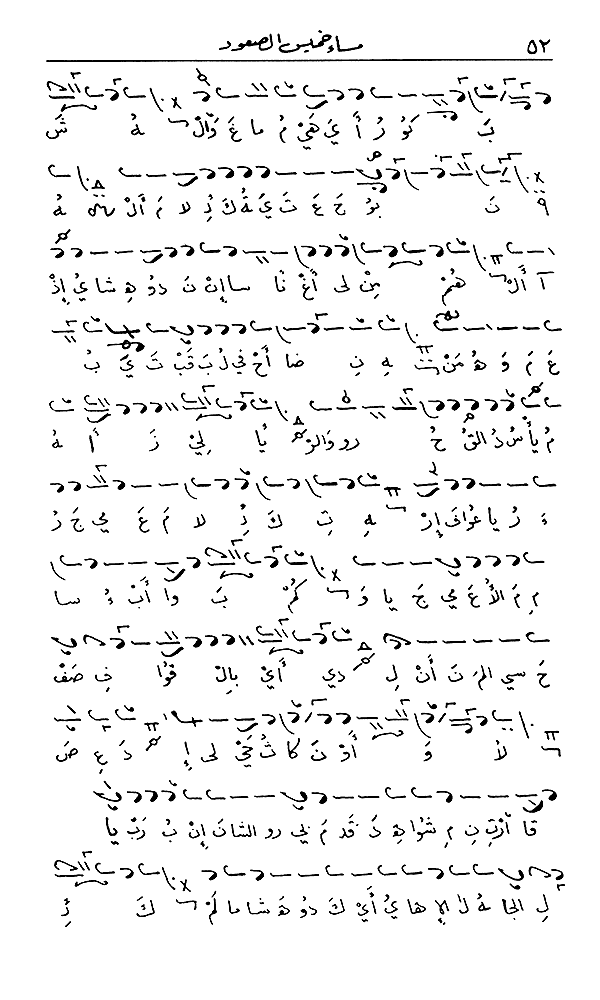 ٥٢ مساء خميس الصعود
بَ كَوُ رُ أَ يَ هَيْ مُ ما غَ وَالْ هُ شَ
تَ بوُ حَ عَ تَ يَ ةُ كَ ذِ لا مَ أَلْ هُ
آ أَلْ هُمْ مِنْ لى أَعْ نا سا إِنْ نَ دوُ هِ شا يُ إِذْ
عَ مَ وَ هُ مَنْ تَ هِ نِ ضا أَحْ في لُ بَ قَبْ تَ يَ بُ
مُ يأَ سُ دُ القُ حُ رو وَالرْ يا لِيْ زَ أَ هُ
ءَ رُ يا عُوا فى إِرْ هِ تِ كَ ذِ لا مَ عَ مي جَ رُ
مِ مَ الأُ عَ مي جَ يا وَ كُمْ بَ وا أَبْ ءُ سا
حَ سي المَ نَ أَنْ لِ دي أَيْ بِالْ قوُا فِ صَفْ
لأَ وَ أَوْ نَ كا ثُ حَيْ لى إِ دَ عِ صَ
قا أَرْتِ نِ مِ شوا هِ دَ قَد مَ ني رو الشا نَ إِنْ بُ رَبْ يا
لِ الجا ةُ لَ الإِ ها يُ أَيْ كَ دوُ هَ شا ما لَمْ كَ ذِ